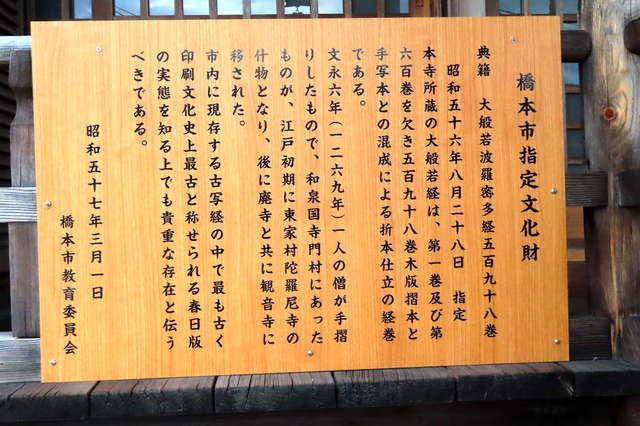 橋本市指定文化財
典籍 大般若波羅密多経五百九十八巻
昭和五十六年八月二十八日 指定
本寺所蔵の大般若経は、第一巻及び第
六百巻を欠き五百九十八巻木版摺本と
手写本との混成による折本仕立の経巻
である。
文永六年(一二六九年)一人の僧が手摺
りしたもので、和泉国寺門村にあった
ものが、江戸初期に東家村陀羅尼寺の
什物となり、後に廃寺と共に観音寺に
移された。
市内に現存する古写経の中で最も古く
印刷文化史上最古と称せられる春日版
の実態を知る上でも貴重な存在と伝う
べきである。
昭和五十七年三月一日
橋本市教育委員会